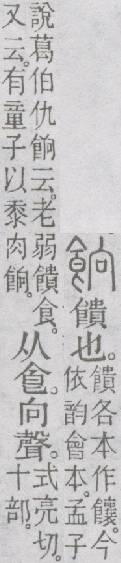 餉
饋也。
饋各本作饟。今
依韵會本。孟子
說葛伯仇餉云。老弱饋食。
又云。有童子以黍肉餉。
从食。向聲。
式亮切。
十部。